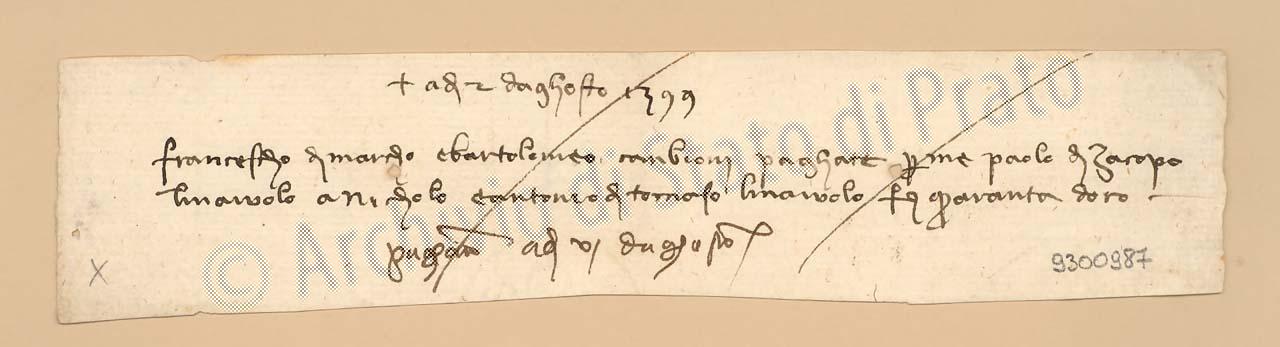 + adi 2 daghosto 1399
francescho di marcho e bartolomeo cambioni paghate per me paolo di Jacopo
linaiuolo a Nicholo e antonio di tomaso linaiuolo fi quaranta doro
paghati adi VI daghosto
X
9300987
© Archivio di Stato di Prato